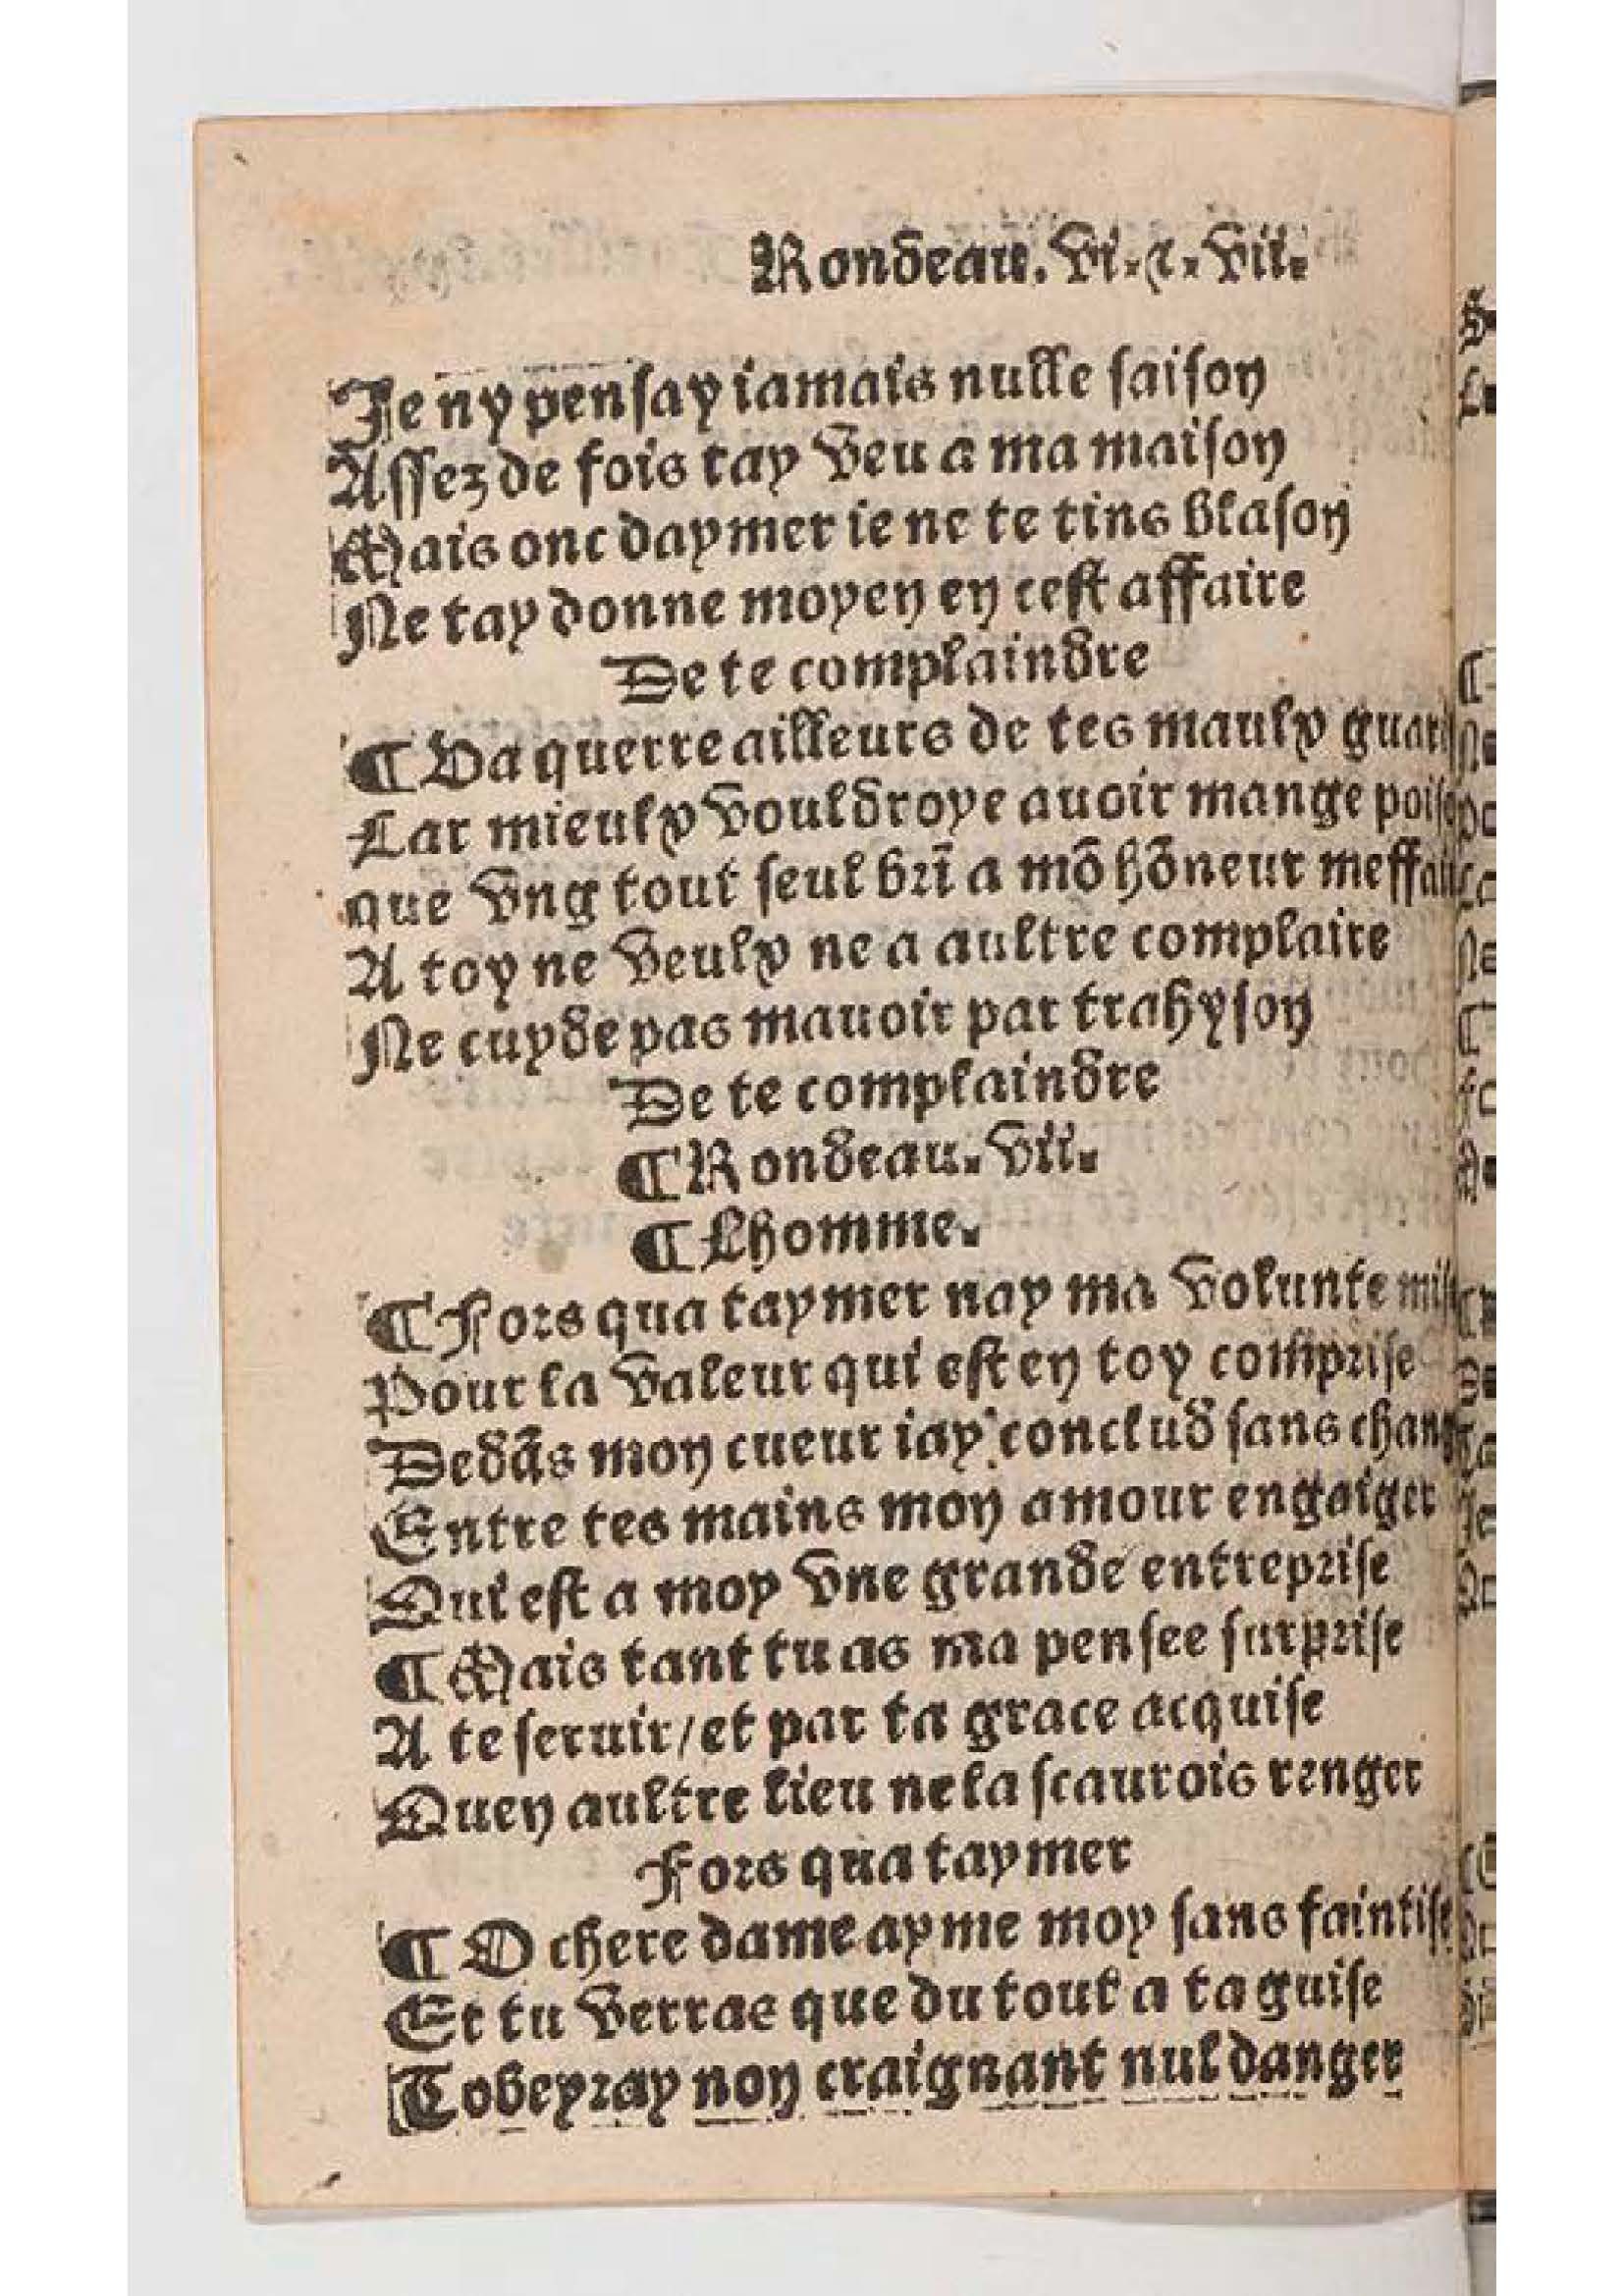 Rondeau. vi. &. vii.
Je ny pensay iamais nulle saison
Assez de fois tay veu a ma maison
Mais onc daymer ie ne te tins blason
Ne tay donne moyen en cest affaire
De te complaindre
¶ Va querre ailleurs de tes maulx
Car mieulx vouldroye auoir mange
que vng tout seul bri a mõ hõneur
A toy ne veulx ne a aultre complaire
Ne cuyde pas mauoir par trahyson
De te complaindre
¶ Rondeau. vii.
¶ Lhomme.
¶ Fors qua taymer nay ma volunte
Pour la valeur qui est en toy comprise
Dedãs mon cueur iay conclud sans
Entre tes mains mon amour engaiger
Qui est a moy vne grande entreprise
¶ Mais tant tu as ma pensee surprise
A te seruir / et par ta grace acquise
Quen aultre lieu ne la scaurois renger
Fors qua taymer
¶ O chere dame ayme moy sans faintise
Et tu verras que du tout a ta guise
Tobeyray non craignant nul danger